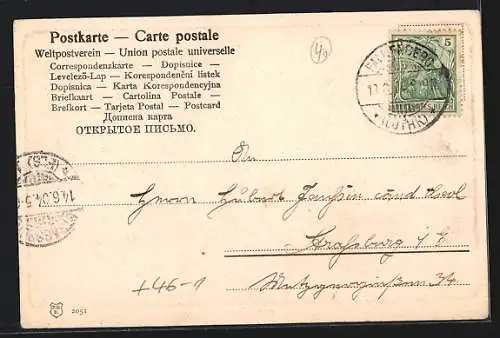 Postkarte — Carte postale
Weltpostverein — Union postale universelle
Correspondenzkarte — Dopisnice —
Levelező-Lap — Korespondenční lístek
Dopisnica — Karta Korespondencyjna
Briefkaart — Cartolina Postale —
Brefkort — Tarjeta Postal — Postcard
Дописна карта
ОТКРЫТОЕ ПИСЬМО.
5
14.6.04.
An
Herrn Hubert Janssen cand theol
Strassburg i/E
Metzgergiessen 34
+46-1
2051